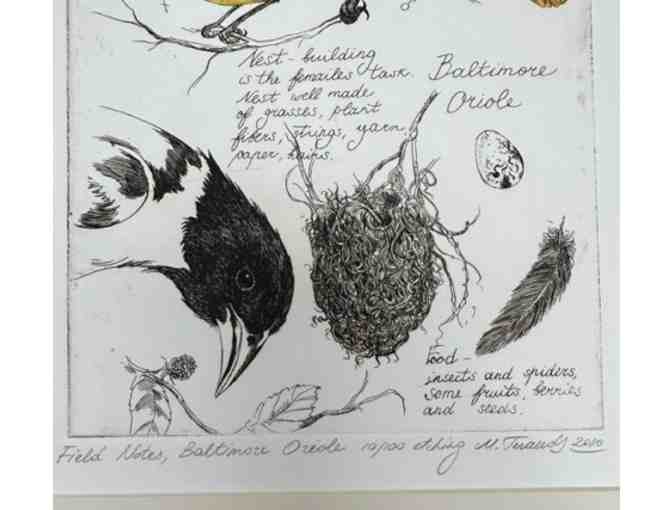 Nest-building
is the femailes task.
Nest well made
of grasses, plant
fibers, strings, yarn,
paper, hairs.
Baltimore
Oriole
Food –
insects and spiders,
some fruits, berries
and seeds.
Field Notes, Baltimore Oriole etching M. 2010